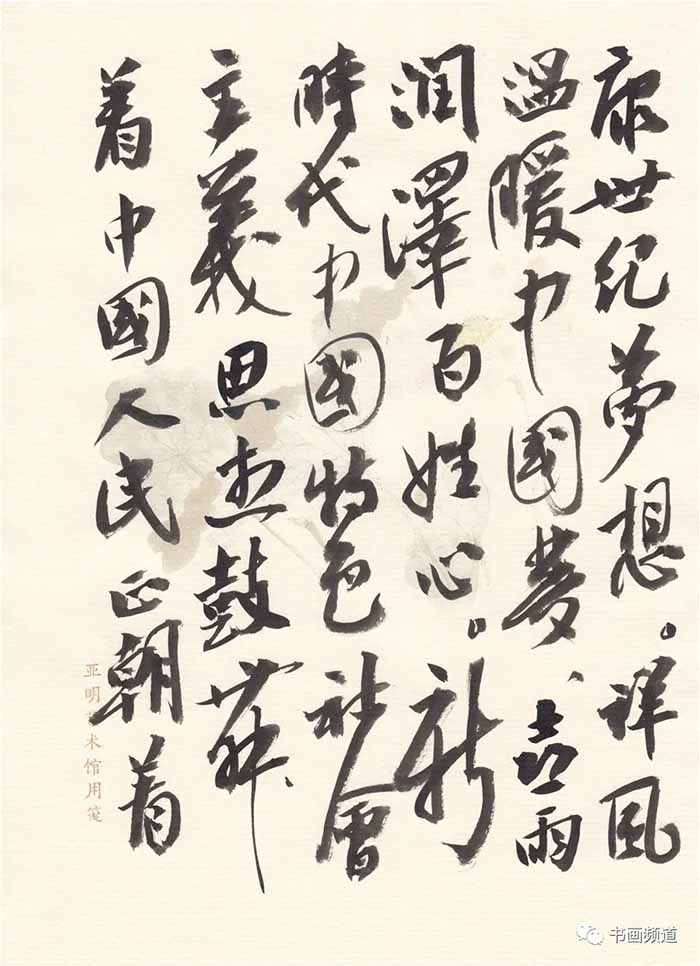 康世纪夢想。祥風
温暖中国夢、喜雨
润澤百姓心。新
時代中國特色社會
主義思想鼓舞
着中國人民正朝着
亚明艺术馆用笺
书画频道